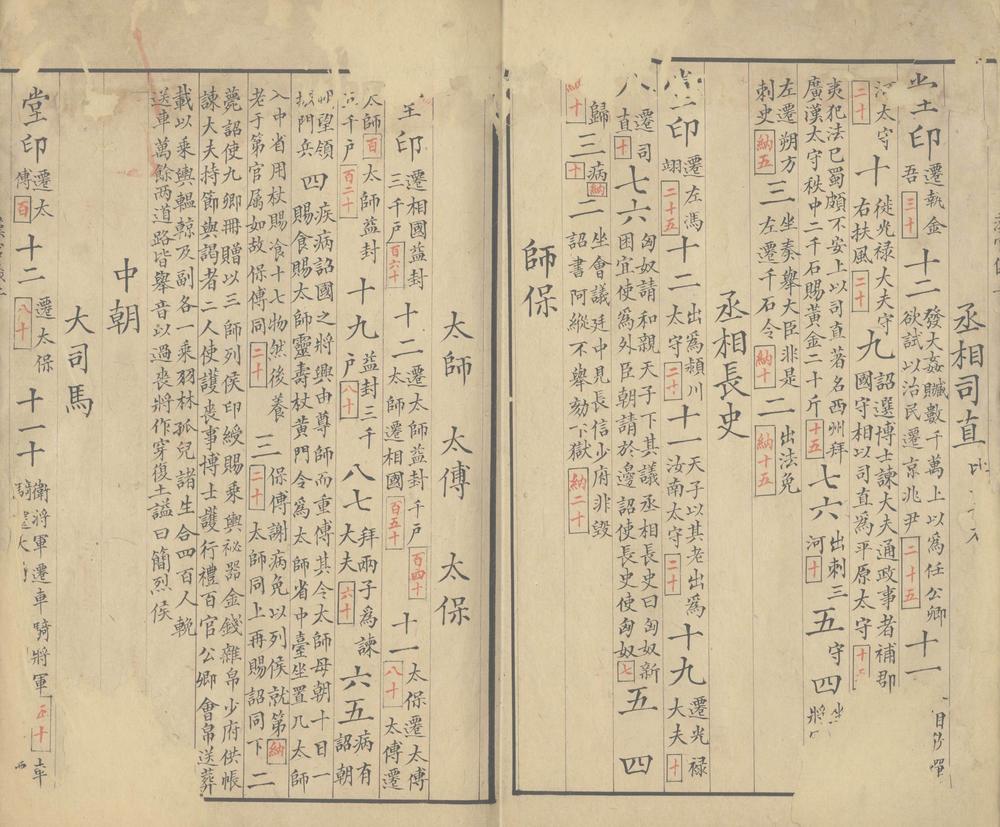 丞相司直
堂印遷執金吾三十十二發大姦贓數千萬上以為任公卿欲試以治民遷京兆尹二十五十一
河太守二十十徙光祿大夫守右扶風二十九詔選博士諫大夫通政事者補郡國守相以司直為平原太守
夷犯法巴蜀頗不安上以司直著名西州拜廣漢太守秩中二千石賜黃金二十斤十五七六出刺三河十五守四
左遷朔方刺史納五三坐奏舉大臣非是左遷千石令納十二出法免納十五
丞相長史
堂印遷左馮翊二十五十二出為潁川太守二十十一天子以其老出為汝南太守二十十九遷光祿大夫十
八遷司直十七六匈奴請和親天子下其議丞相長史曰匈奴新困宜使為外臣朝請於邊詔使長史使匈奴七五四
歸十三病十納二坐會議廷中見長信少府非毀詔書阿縱不舉劾下獄納二十
師保
太師 太傅 太保
堂印遷相國益封三千戶百六十十二遷太師益封千戶太師遷相國百五十百四十十一太保遷太傅八十太傅遷
太師百太師益封千戶百二十十九益封三千戶八十八七拜兩子為諫大夫六十六五病有詔朝
朔望領城門兵四疾病詔國之將興由尊師而重傅其令太師母朝十日一賜食賜太師靈壽杖黃門令為太師省中臺坐置几太師
入中省用杖賜飡十七物然後養老于第官屬如故保傅同二十三保傅謝病免以列侯就第納二十太師同上再賜詔同下二
薨詔使九卿冊贈以三師列侯印綬賜乘輿祕器金錢雜帛少府供帳諫大夫持節與謁者二人使護喪事博士護行禮百官公卿會帛送葬
載以乘輿轀輬及副各一乘羽林孤兒諸生合四百人輓送車萬餘兩道路皆舉音以過喪將作穿復土謚曰簡烈侯
中朝
大司馬
堂印遷太傅百十二遷太保八十十一十衛將軍遷車騎將軍五十